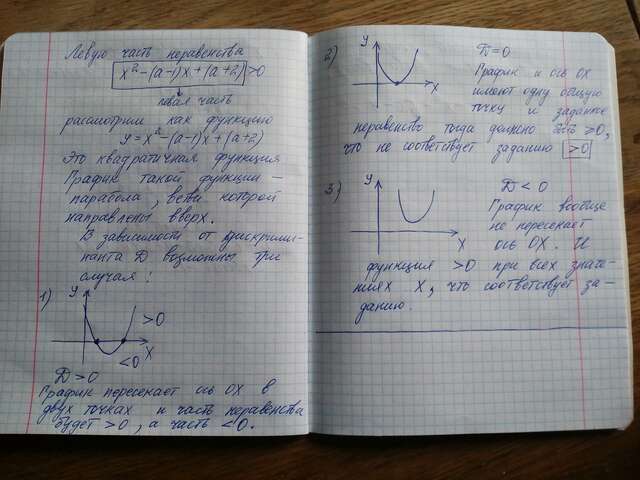 Левую часть неравенства
x² – (a–1)x + (a+2) > 0
левая часть
рассмотрим как функцию
y = x² – (a–1)x + (a+2)
Это квадратичная функция
График такой функции –
парабола, ветви которой
направлены вверх.
В зависимости от дискрими-
нанта D возможны три
случая:
1)
y
>0
x
<0
D > 0
График пересекает ось OX в
двух точках и часть неравенства
будет >0, а часть <0.
2)
y
x
D = 0
График и ось OX
имеют одну общую
точку и заданное
неравенство тогда должно быть ≥0,
что не соответствует заданию >0
3)
y
x
D < 0
График вообще
не пересекает
ось OX. И
функция >0 при всех значе-
ниях x, что соответствует за-
данию.